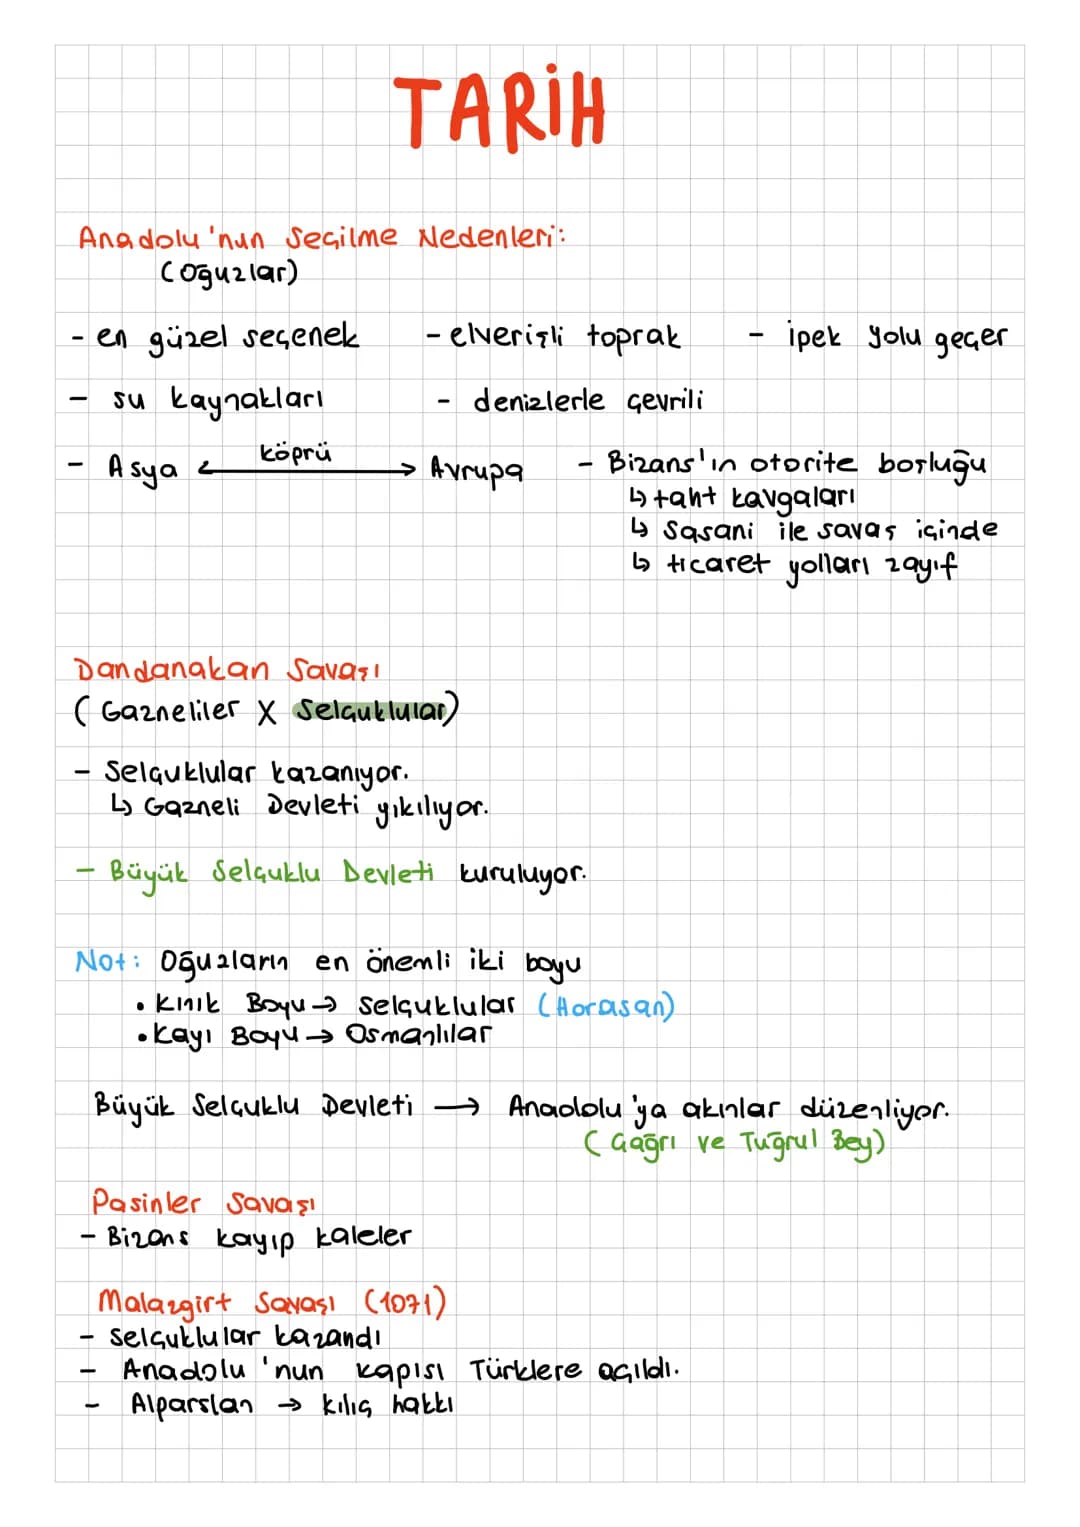 TARİH
Anadolu'nun Seçilme Nedenleri:
(Oğuzlar)
- en güzel seçenek - elverişli toprak - ipek yolu geçer
- su kaynakları - denizlerle çevrili
- Asya ←köprü→ Avrupa - Bizans'ın otorite boşluğu
↳ taht kavgaları
↳ Sasani ile savaş içinde
↳ ticaret yolları zayıf
Dandanakan Savaşı
(Gazneliler X Selçuklular)
- Selçuklular kazanıyor.
↳ Gazneli Devleti yıkılıyor.
- Büyük Selçuklu Devleti kuruluyor.
Not: Oğuzların en önemli iki boyu
• Kınık Boyu → Selçuklular (Horasan)
• Kayı Boyu → Osmanlılar
Büyük Selçuklu Devleti → Anadolu'ya akınlar düzenliyor.
(Çağrı ve Tuğrul Bey)
Pasinler Savaşı
- Bizans kayıp kaleler
Malazgirt Savaşı (1071)
- Selçuklular kazandı
- Anadolu'nun kapısı Türklere açıldı.
- Alparslan → kılıç hakkı